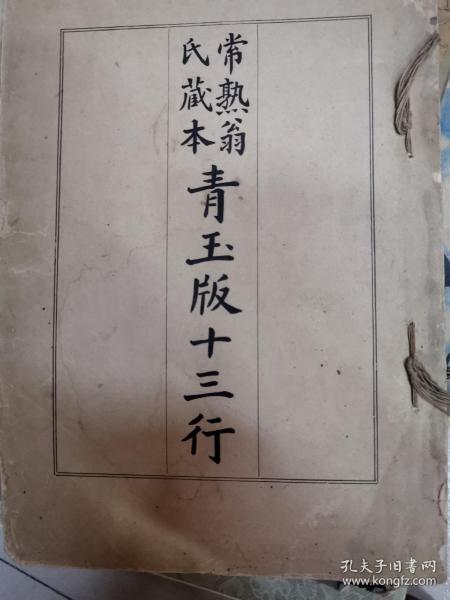 常熟翁
氏藏本
青玉版十三行
孔夫子旧书网
www.kongfz.com